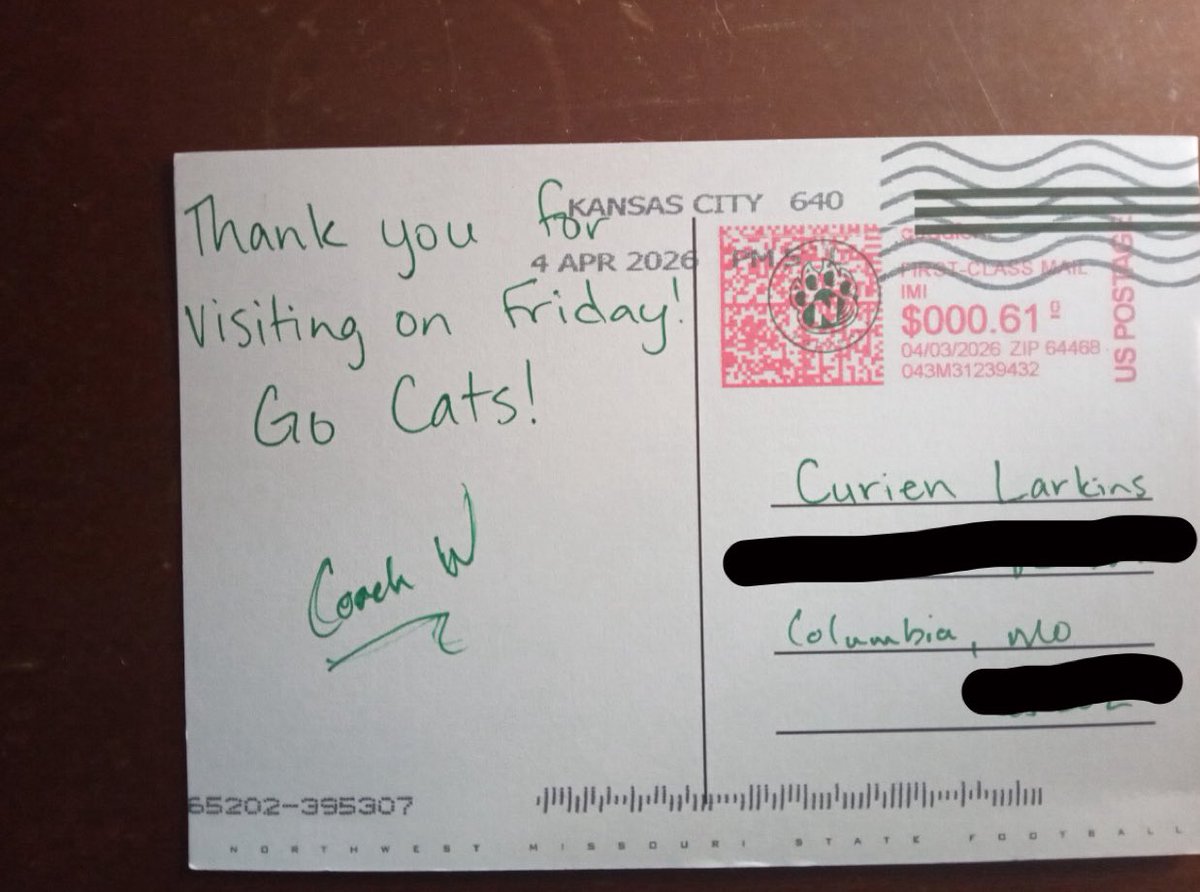 Thank you for
visiting on Friday!
Go Cats!
Coach W
KANSAS CITY 640
4 APR 2026 PM 5 L
FIRST-CLASS MAIL
IMI
$000.61
04/03/2026 ZIP 64468
043M31239432
US POSTAGE
N
Curien Larkins
Columbia, MO
65202-395307
NORTHWEST MISSOURI STATE FOOTBALL